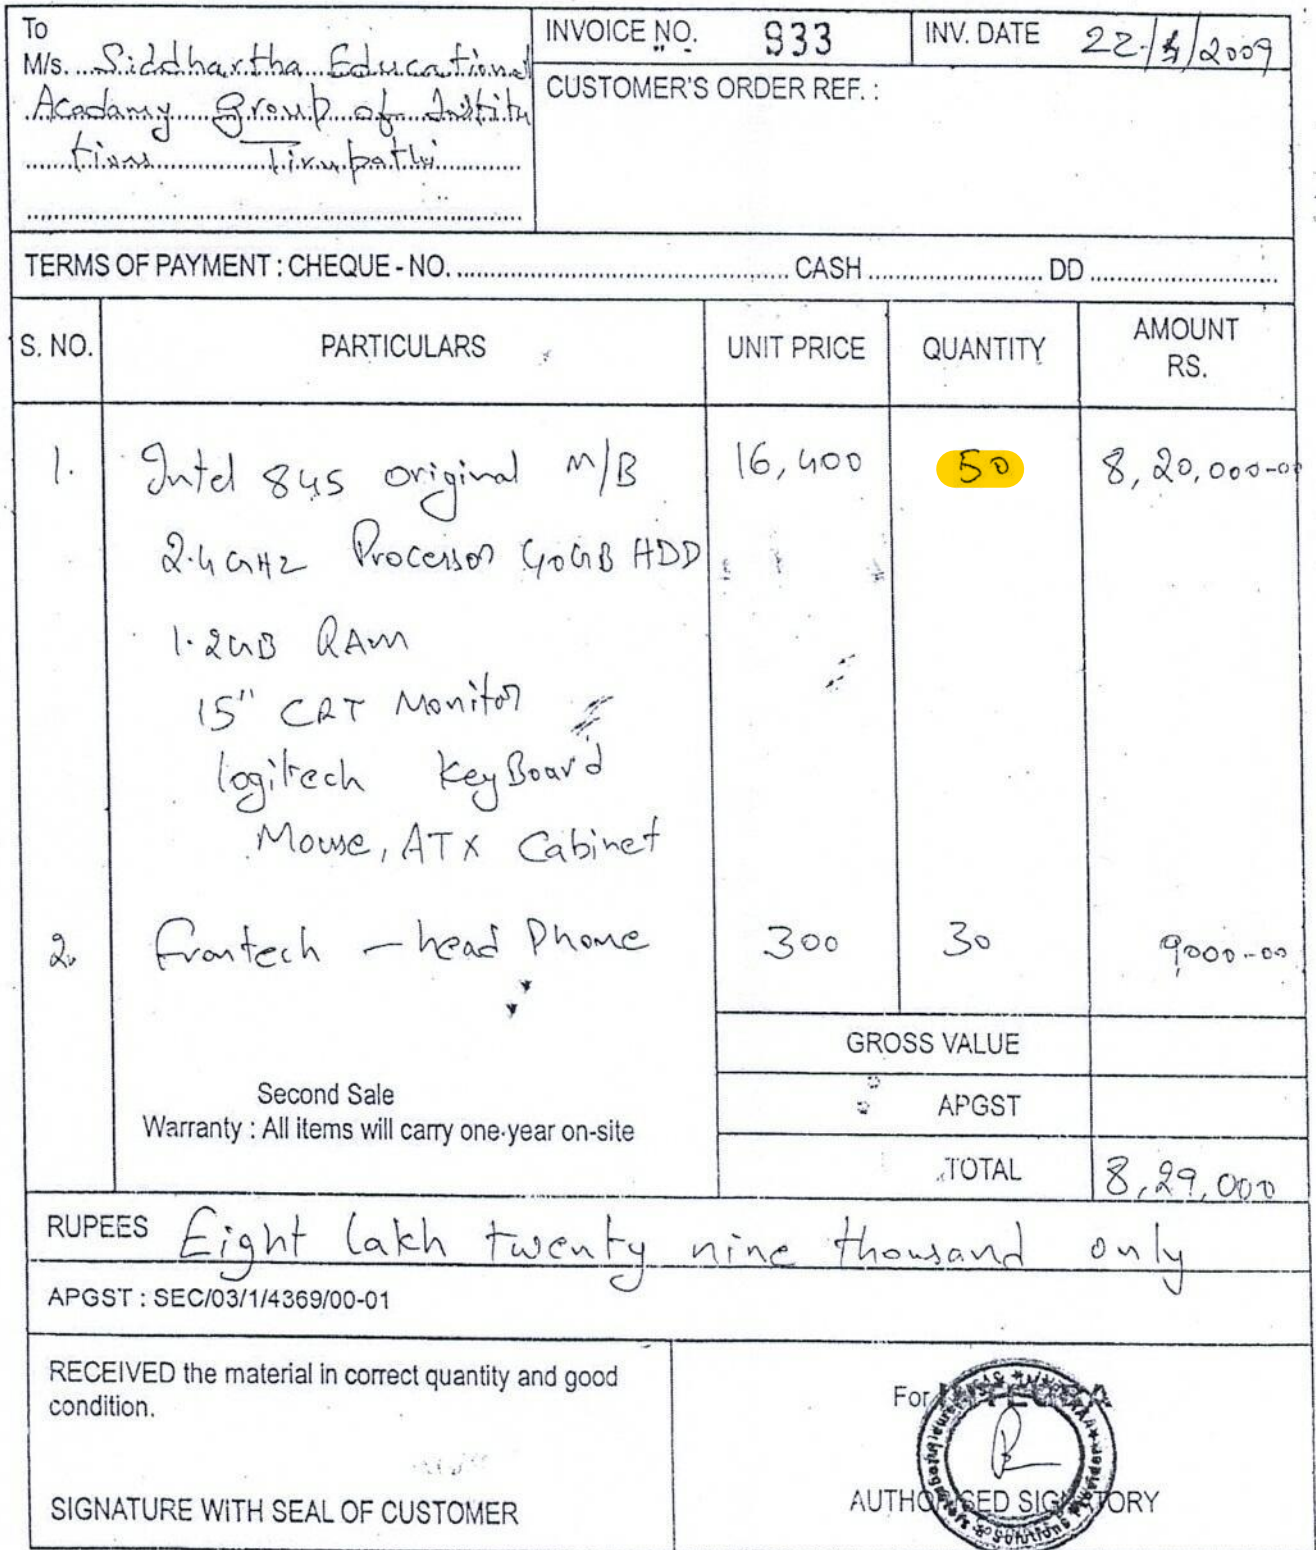 To
M/s. Siddhartha Educational
Acadamy Group of Institu
tions Tirupathi
INVOICE NO. 933
INV. DATE 22/4/2009
CUSTOMER'S ORDER REF. :
TERMS OF PAYMENT : CHEQUE - NO. CASH DD
S. NO. PARTICULARS UNIT PRICE QUANTITY AMOUNT RS.
1. Intel 845 original M/B 16,400 50 8,20,000-00
2.4 GHz Processor 40GB HDD
1.2GB RAM
15" CRT Monitor
logitech KeyBoard
Mouse, ATX Cabinet
2. Frontech - head Phone 300 30 9000-00
GROSS VALUE
Second Sale
APGST
Warranty : All items will carry one-year on-site
TOTAL 8,29,000
RUPEES Eight lakh twenty nine thousand only
APGST : SEC/03/1/4369/00-01
RECEIVED the material in correct quantity and good
condition.
For
SIGNATURE WITH SEAL OF CUSTOMER
AUTHORISED SIGNATORY